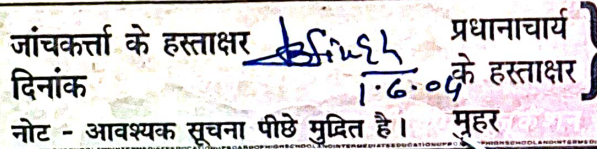 जांचकर्त्ता के हस्ताक्षर प्रधानाचार्य
दिनांक 1.6.04 के हस्ताक्षर
नोट - आवश्यक सूचना पीछे मुद्रित है। मुहर